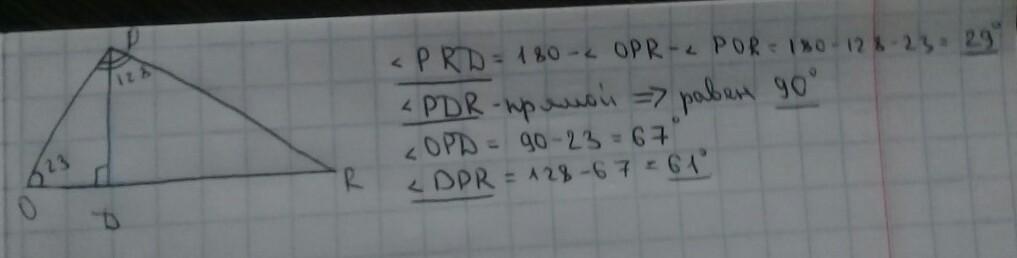 P
128
23
O
D
R
∠PRD = 180 - ∠OPR - ∠POR = 180 - 128 - 23 = 29°
∠PDR - прямой => равен 90°
∠OPD = 90 - 23 = 67°
∠DPR = 128 - 67 = 61°